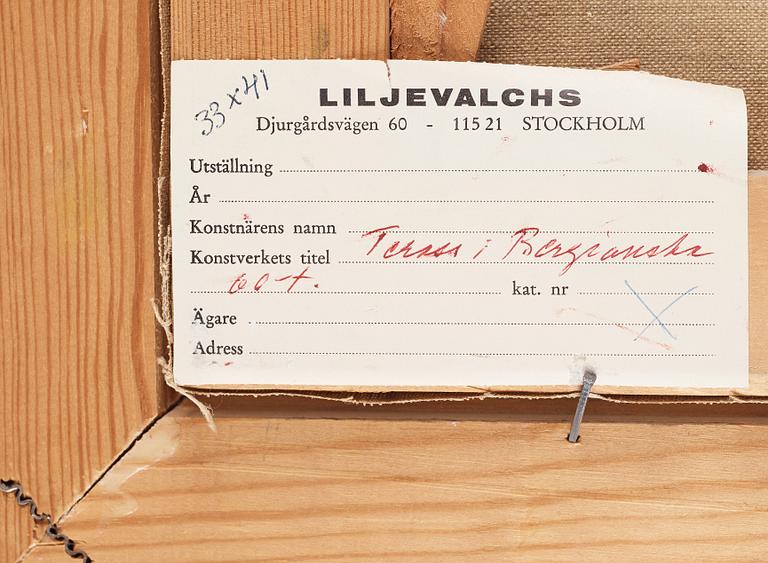 33 x 41
LILJEVALCHS
Djurgårdsvägen 60 - 115 21 STOCKHOLM
Utställning
År
Konstnärens namn
Konstverkets titel Terass i Bergianska
bot.
kat. nr X
Ägare
Adress